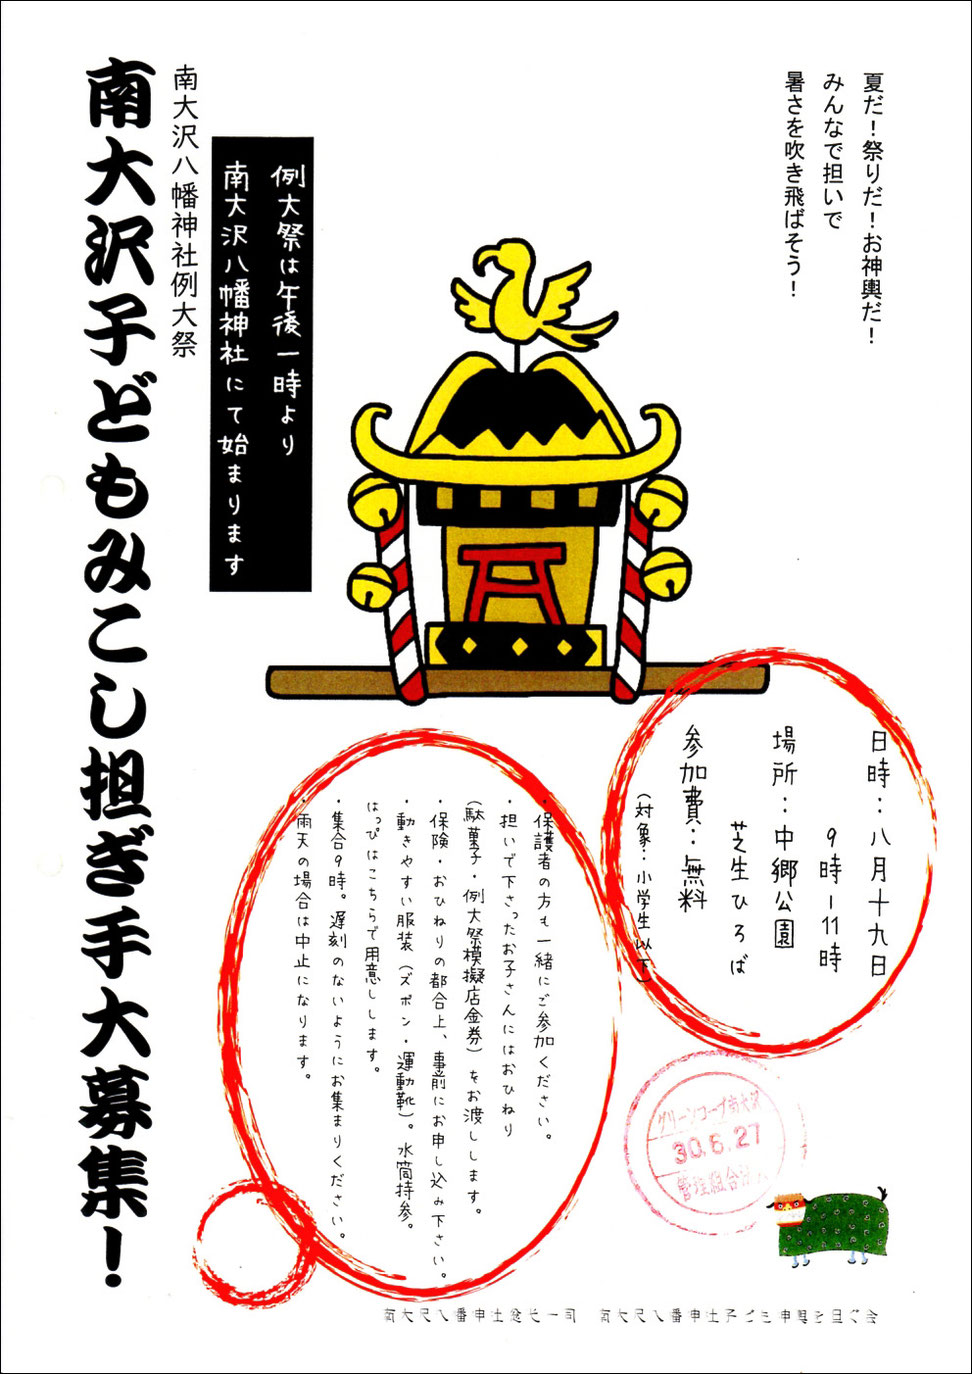 夏だ！祭りだ！お神輿だ！
みんなで担いで
暑さを吹き飛ばそう！
例大祭は午後一時より
南大沢八幡神社にて始まります
南大沢八幡神社例大祭
南大沢子どもみこし担ぎ手大募集！
日時：八月十九日
9時-11時
場所：中郷公園
芝生ひろば
参加費：無料
（対象：小学生以下）
・保護者の方も一緒にご参加ください。
・担いで下さったお子さんにはおひねり
（駄菓子・例大祭模擬店金券）をお渡しします。
・保険・おひねりの都合上、事前にお申し込み下さい。
・動きやすい服装（ズボン・運動靴）。水筒持参。
はっぴはこちらで用意しします。
・集合9時。遅刻のないようにお集まりください。
・雨天の場合は中止になります。
グリーンコープ南大沢
30.6.27
管理組合